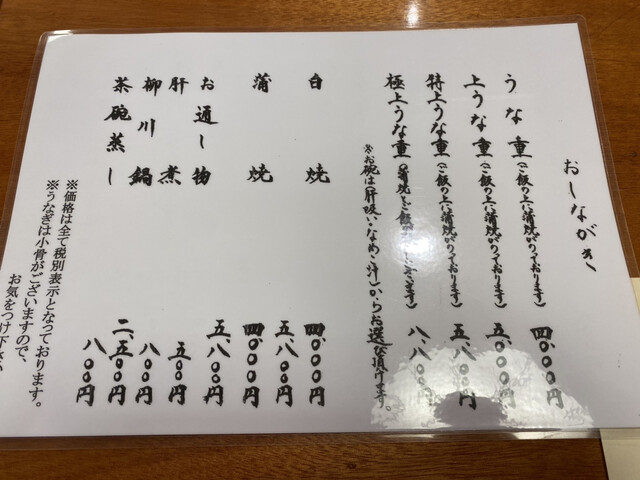 おしながき
うな重(ご飯の上に蒲焼がのっております) 四、〇〇〇円
上うな重(ご飯の上に蒲焼がのっております) 五、〇〇〇円
特上うな重(ご飯の上に蒲焼がのっております) 五、八〇〇円
極上うな重(蒲焼をご飯 ます) 八、八〇〇円
※お椀は肝吸い・なめこ汁からお選び頂けます。
白焼 四、〇〇〇円
五、八〇〇円
蒲焼 四、〇〇〇円
五、八〇〇円
お通し物 五〇〇円
肝煮 八〇〇円
柳川鍋 二、五〇〇円
茶碗蒸し 八〇〇円
※価格は全て税別表示となっております。
※うなぎは小骨がございますので、
お気をつけ下さい